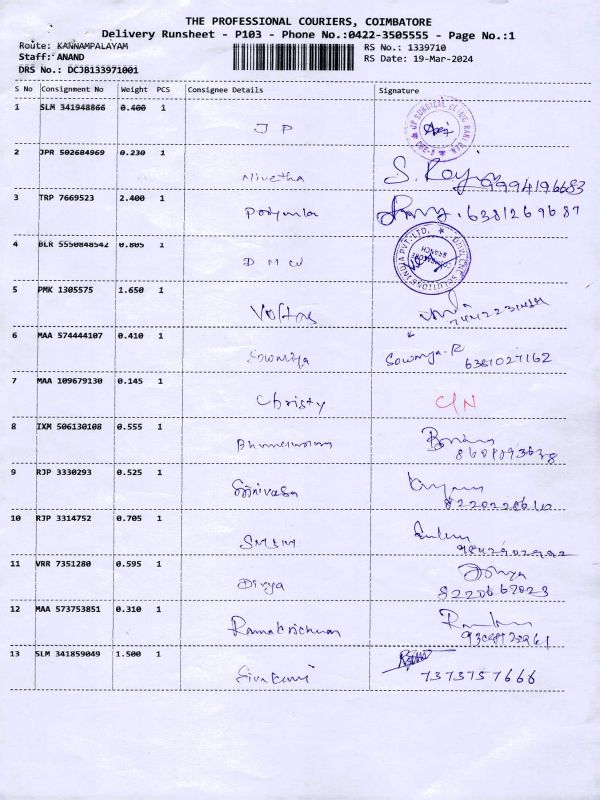 THE PROFESSIONAL COURIERS, COIMBATORE
Delivery Runsheet - P103 - Phone No.:0422-3505555 - Page No.:1
Route: KANNAMPALAYAM RS No.: 1339710
Staff: ANAND RS Date: 19-Mar-2024
DRS No.: DCJB133971001
S No Consignment No Weight PCS Consignee Details Signature
1 SLM 341948866 0.400 1 J P
2 JPR 502684969 0.230 1 Nivetha S. Raji 9994196683
3 TRP 7669523 2.400 1 Poriyanla 6381269687
4 BLR 5550848542 0.805 1 D M W
5 PMK 1305575 1.650 1 Voltas
6 MAA 574444107 0.410 1 Sowmiya Sowmya.R 6381027162
7 MAA 109679130 0.145 1 Christy C/N
8 IXM 506130108 0.555 1
9 RJP 3330293 0.525 1 Srinivasa
10 RJP 3314752 0.705 1 SMSM
11 VRR 7351280 0.595 1 Divya Divya 8220667023
12 MAA 573753851 0.310 1 Ramakrishnan
13 SLM 341859049 1.500 1 Sivakami 7373757666